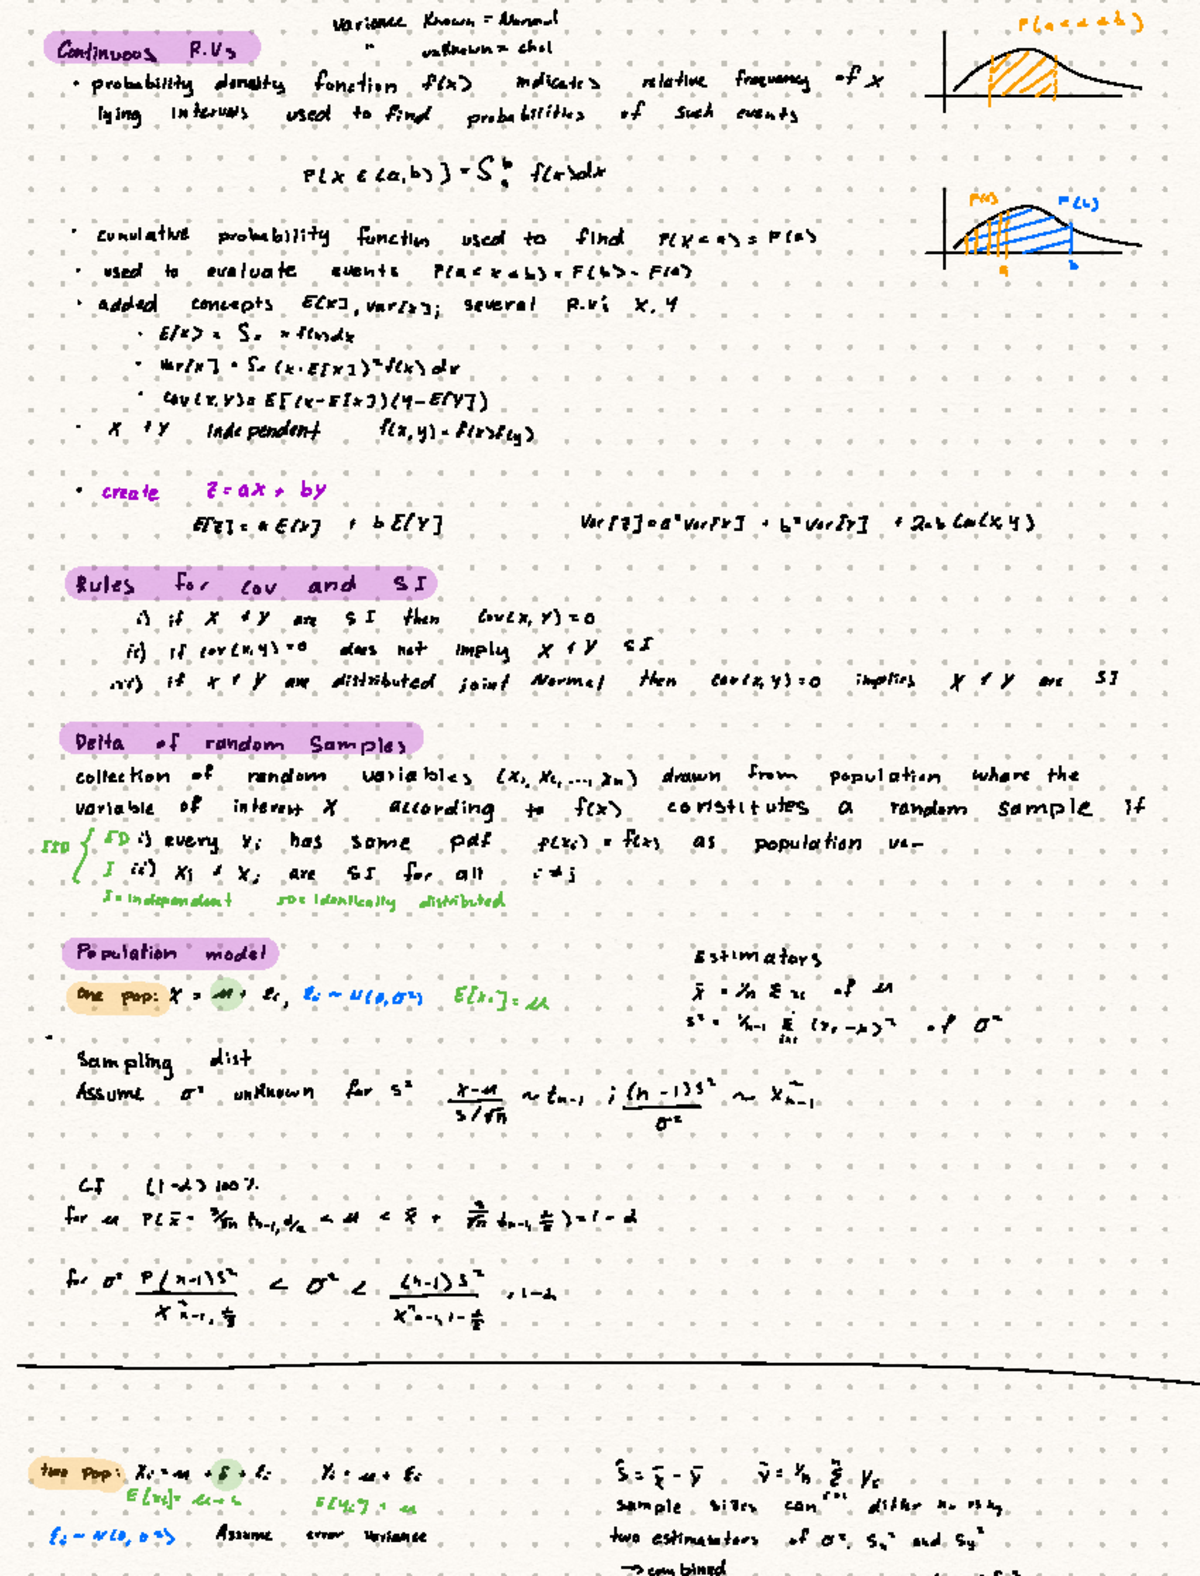 variance Known = Normal
" unknown = chol
Continuous R.Vs
P(a<x<b)
• probability density function f(x) indicates relative frequency of x
lying intervals used to find probabilities of such events
P[X ∈ (a,b)] = ∫ₐᵇ f(x)dx
F(a) F(b)
a b
• cumulative probability function used to find P(X<a) = F(a)
• used to evaluate events P(a<x<b) = F(b) - F(a)
• added concepts E[x], var[x]; several R.Vs X, Y
• E[x] = ∫ₓ x f(x)dx
• var[x] = ∫ₓ (x-E[x])² f(x) dx
• cov(x,y) = E[(x-E[x])(y-E[y])
• X + Y independent f(x,y) = f(x)f(y)
• create Z = ax + by
E[Z] = a E[x] + b E[Y]
Var[Z] = a² Var[x] + b² Var[Y] + 2ab Cov(x,y)
Rules for cov and SI
i) if X + Y are SI then Cov(X, Y) = 0
ii) if cov(x,y)=0 does not imply X + Y SI
iii) if X + Y are distributed joint Normal then cov(x,y)=0 implies X + Y are SI
Delta of random Samples
collection of random variables (x₁, x₂, ..., xₙ) drawn from population where the
variable of interest X according to f(x) constitutes a random sample if
IID { ID i) every xᵢ has same pdf p(xᵢ) = f(x) as population var
I ii) xᵢ + xⱼ are SI for all i≠j
I = independent ID = Identically distributed
Population model
Estimators
one pop: X = μ + εᵢ, εᵢ ~ N(0,σ²) E[xᵢ] = μ
x̄ = 1/n Σ xᵢ of μ
s² = 1/n-1 Σ (xᵢ - x)² of σ²
Sampling dist
Assume σ² unknown for s² x-μ / s/√n ~ tₙ₋₁ ; (n-1)s² / σ² ~ X²ₙ₋₁
CI (1-α) 100%
for μ P(x̄ - s/√n tₙ₋₁,α/2 < μ < x̄ + s/√n tₙ₋₁,α/2) = 1-α
for σ² P(n-1)s² / X²ₙ₋₁,α/2 < σ² < (n-1)s² / X²ₙ₋₁,₁₋α/2 , 1-α
two pop: Xᵢ = μ + δ + εᵢ Yᵢ = μ + εᵢ
E[xᵢ] = μ + δ E[yᵢ] = μ
εᵢ ~ N(0, σ²) Assume error variance
δ̂ = x̄ - ȳ ȳ = 1/n Σ yᵢ
sample sizes can differ
two estimators of σ², Sx² and Sy²
→ combined